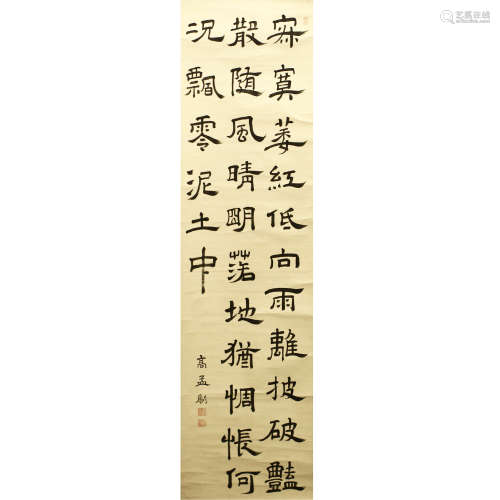 寂寞萎紅低向雨離披破豔
散随風晴明落地猶惆悵何
況飄零泥土中
高孟
艺狐在线